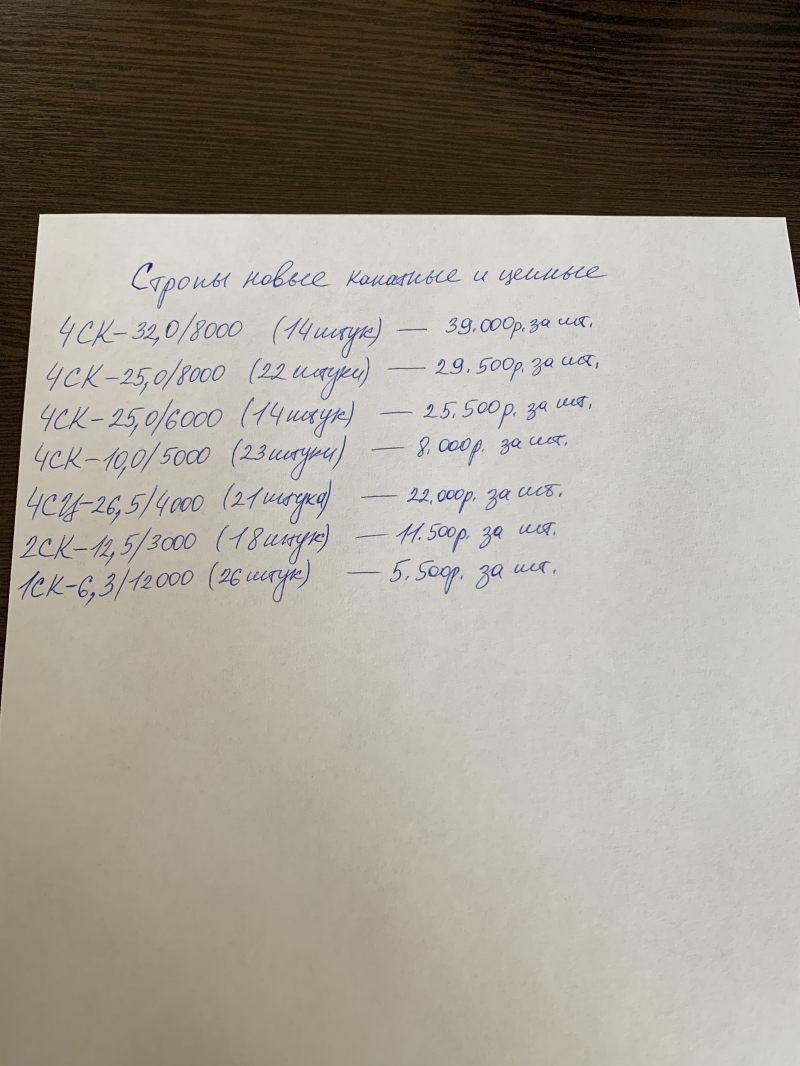 Стропы новые канатные и цепные
4СК-32,0/8000 (14 штук) — 39.000р. за шт.
4СК-25,0/8000 (22 штуки) — 29.500р. за шт.
4СК-25,0/6000 (14 штук) — 25.500р. за шт.
4СК-10,0/5000 (23 штуки) — 8.000р. за шт.
4СЦ-26,5/4000 (21 штука) — 22.000р. за шт.
2СК-12,5/3000 (18 штук) — 11.500р. за шт.
1СК-6,3/12000 (26 штук) — 5.500р. за шт.